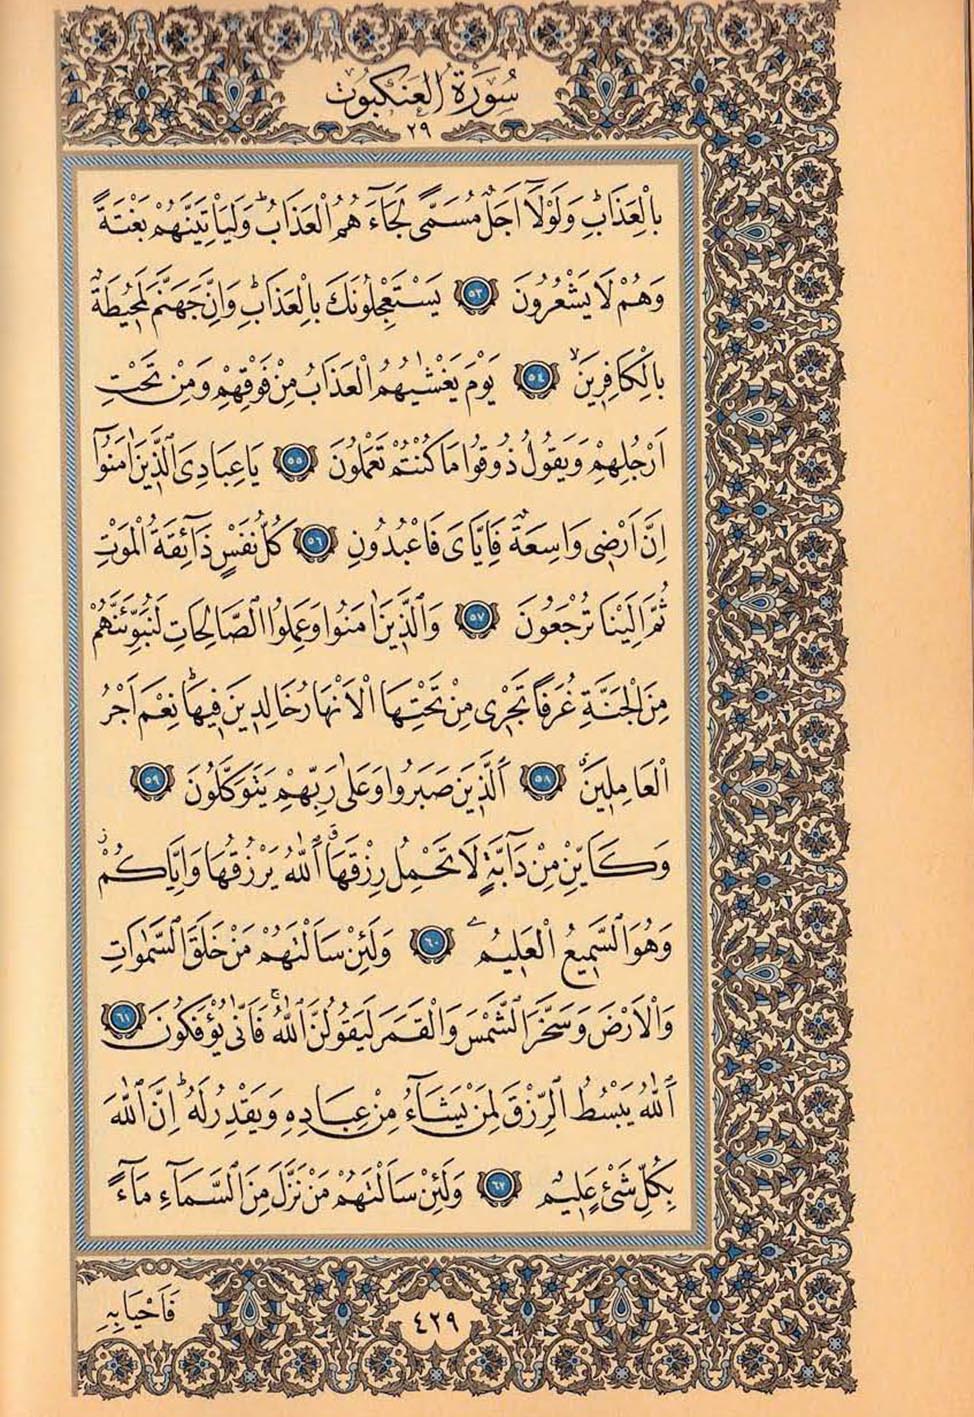 سُورَةُ الْعَنْكَبُوتِ
٢٩
بِالْعَذَابِۜ وَلَوْلَٓا اَجَلٌ مُسَمًّى لَجَٓاءَ هُمُ الْعَذَابُۜ وَلَيَأْتِيَنَّهُمْ بَغْتَةً
وَهُمْ لَا يَشْعُرُونَ ٥٣ يَسْتَعْجِلُونَكَ بِالْعَذَابِۜ وَاِنَّ جَهَنَّمَ لَمُح۪يطَةٌ
بِالْكَافِر۪ينَۙ ٥٤ يَوْمَ يَغْشٰيهُمُ الْعَذَابُ مِنْ فَوْقِهِمْ وَمِنْ تَحْتِ
اَرْجُلِهِمْ وَيَقُولُ ذُوقُوا مَا كُنْتُمْ تَعْمَلُونَ ٥٥ يَا عِبَادِيَ الَّذ۪ينَ اٰمَنُٓوا
اِنَّ اَرْض۪ي وَاسِعَةٌ فَاِيَّايَ فَاعْبُدُونِ ٥٦ كُلُّ نَفْسٍ ذَٓائِقَةُ الْمَوْتِ
ثُمَّ اِلَيْنَا تُرْجَعُونَ ٥٧ وَالَّذ۪ينَ اٰمَنُوا وَعَمِلُوا الصَّالِحَاتِ لَنُبَوِّئَنَّهُمْ
مِنَ الْجَنَّةِ غُرَفاً تَجْر۪ي مِنْ تَحْتِهَا الْاَنْهَارُ خَالِد۪ينَ ف۪يهَاۜ نِعْمَ اَجْرُ
الْعَامِل۪ينَۗ ٥٨ اَلَّذ۪ينَ صَبَرُوا وَعَلٰى رَبِّهِمْ يَتَوَكَّلُونَ ٥٩
وَكَاَيِّنْ مِنْ دَٓابَّةٍ لَا تَحْمِلُ رِزْقَهَاۗ اَللّٰهُ يَرْزُقُهَا وَاِيَّاكُمْۘ
وَهُوَ السَّم۪يعُ الْعَل۪يمُ ٦٠ وَلَئِنْ سَاَلْتَهُمْ مَنْ خَلَقَ السَّمٰوَاتِ
وَالْاَرْضَ وَسَخَّرَ الشَّمْسَ وَالْقَمَرَ لَيَقُولُنَّ اللّٰهُۚ فَاَنّٰى يُؤْفَكُونَ ٦١
اَللّٰهُ يَبْسُطُ الرِّزْقَ لِمَنْ يَشَٓاءُ مِنْ عِبَادِه۪ وَيَقْدِرُ لَهُۜ اِنَّ اللّٰهَ
بِكُلِّ شَيْءٍ عَل۪يمٌ ٦٢ وَلَئِنْ سَاَلْتَهُمْ مَنْ نَزَّلَ مِنَ السَّمَٓاءِ مَٓاءً
٤٢٩
فَاَحْيَا بِهِ